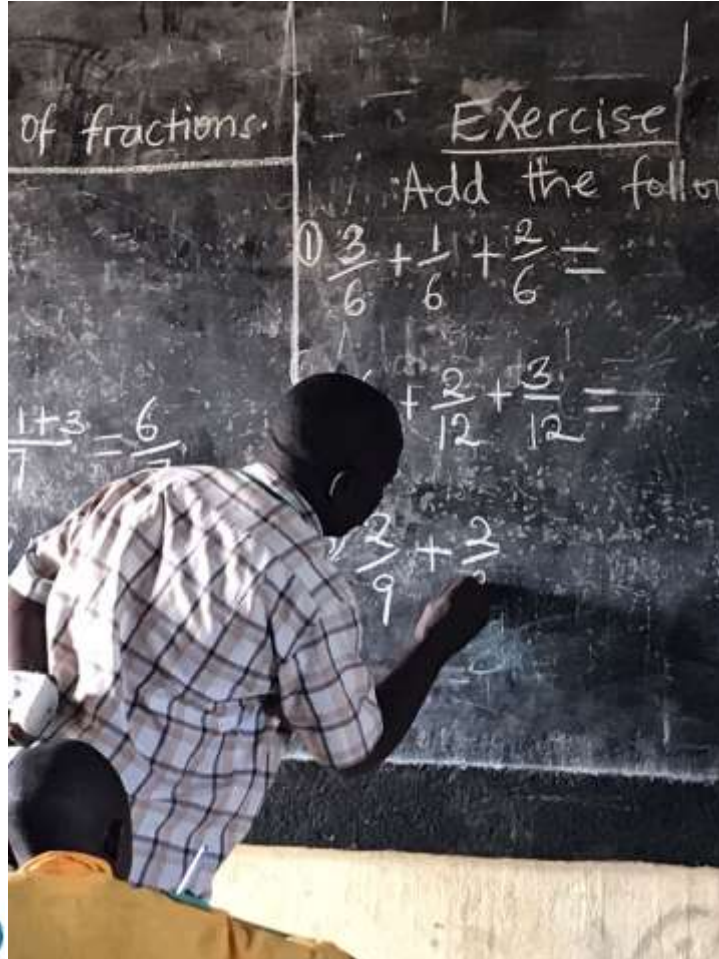 of fractions.
1+3 = 6
Exercise
Add the
① 3/6 + 1/6 + 2/6 =
+ 2/12 + 3/12 =
2/9 + 2/